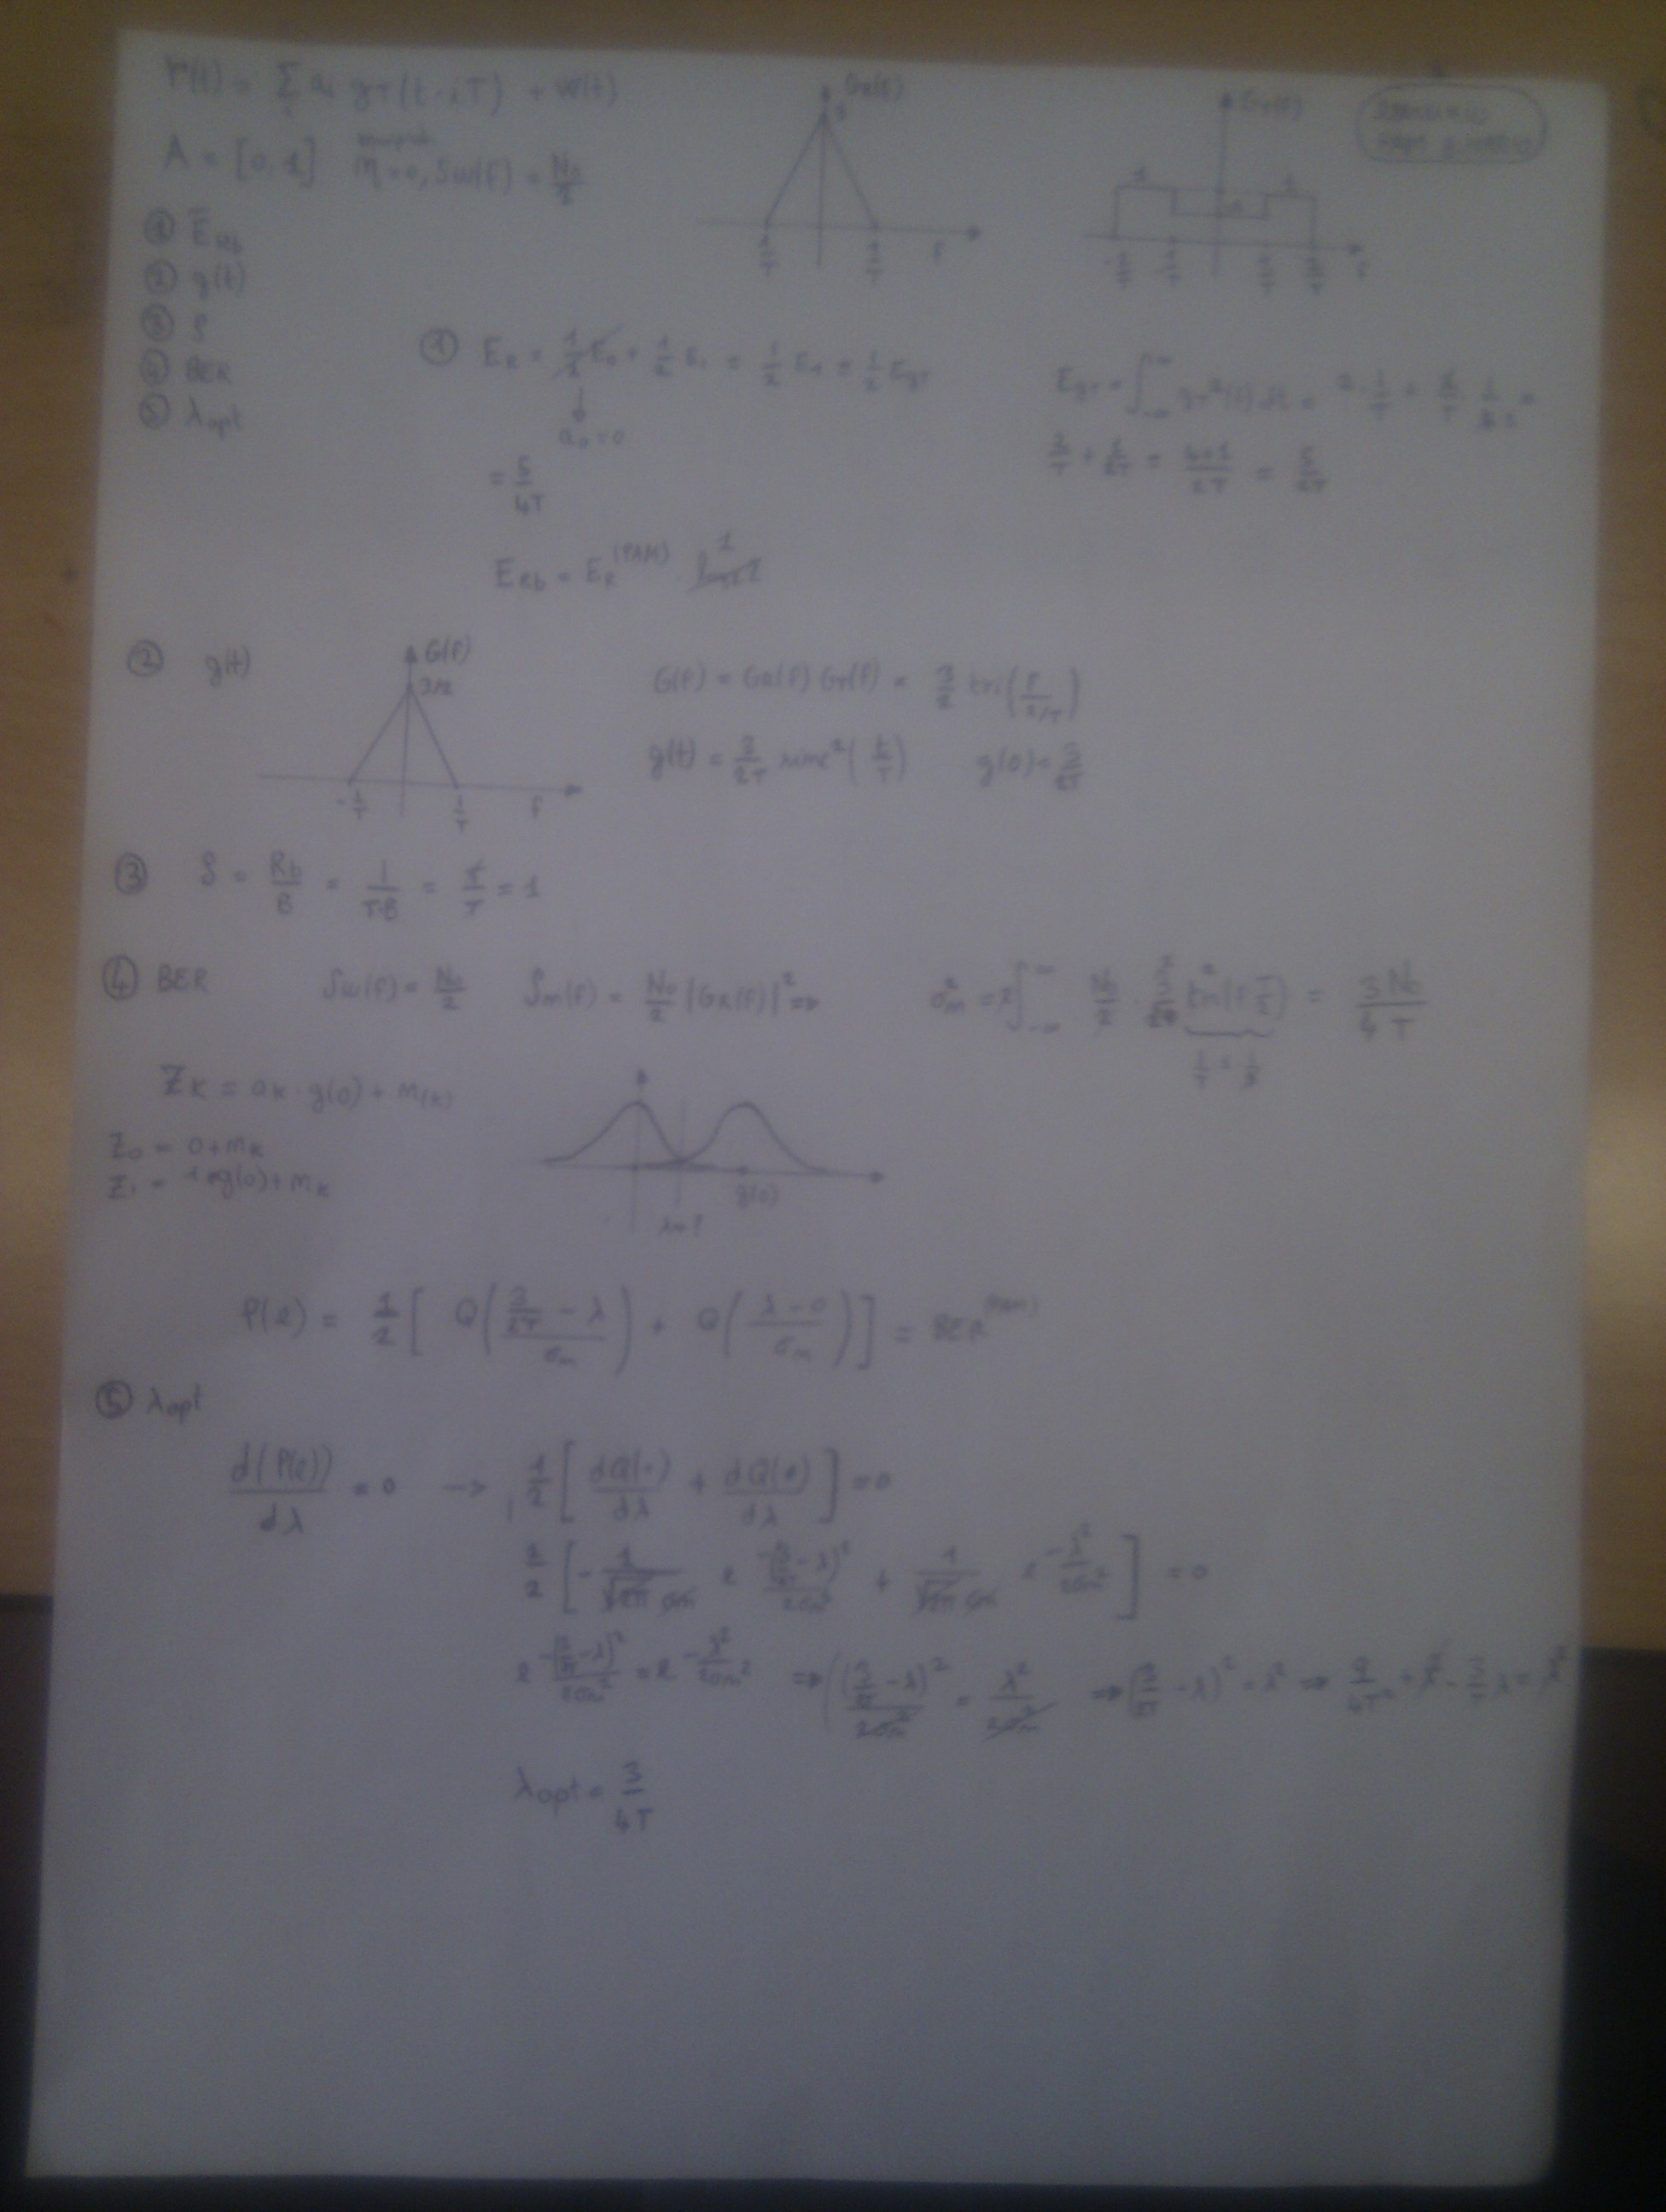 r(t) = Σ_i a_i g_T(t-iT) + w(t)
A = [0,1] η=0, Sw(f) = N0/2
G_R(f)
-1/T 1/T f
G_T(f)
1 1
-2/T -1/T 1/T 2/T f
① E_Rb
② g(t)
③ ρ
④ BER
⑤ λopt
① E_R = 1/2 E_0 + 1/2 E_1 = 1/2 E_1 = 1/2 E_gT
↓
a_0 = 0
= 5/4T
E_gT = ∫_{-∞}^{+∞} g_T²(t) dt = 2·1/T + 2/T 1/4 =
2/T + 1/2T = 4+1/2T = 5/2T
E_Rb = E_R^(PAM) · 1/log₂2
② g(t)
G(f)
3/2
-1/T 1/T f
G(f) = G_R(f) G_T(f) = 3/2 tri(f/2/T)
g(t) = 3/2T sinc²(t/T) g(0) = 3/2T
③ ρ = Rb/B = 1/T·B = T/T = 1
④ BER Sw(f) = N0/2 Sm(f) = N0/2 |G_R(f)|² ⇒
= 3N0/4T
Z_K = a_K · g(0) + m(k)
Z_0 = 0 + m_K
Z_1 = 1·g(0) + m_K
g(0)
P(e) = 1/2 [ Q( (3/2T - λ)/σ_m ) + Q( (λ-0)/σ_m ) ] = BER^(PAM)
⑤ λopt
d(P(e))/dλ = 0 → 1/2 [ dQ(·)/dλ + dQ(·)/dλ ] = 0
1/2 [ - 1/√2π σ_m e^{-(3/2T - λ)²/2σ_m²} + 1/√2π σ_m e^{-λ²/2σ_m²} ] = 0
e^{-(3/2T - λ)²/2σ_m²} = e^{-λ²/2σ_m²} ⇒ (3/2T - λ)²/2σ_m² = λ²/2σ_m² ⇒ (3/2T - λ)² = λ² ⇒ 9/4T² + λ² - 3/T λ = λ²
λopt = 3/4T